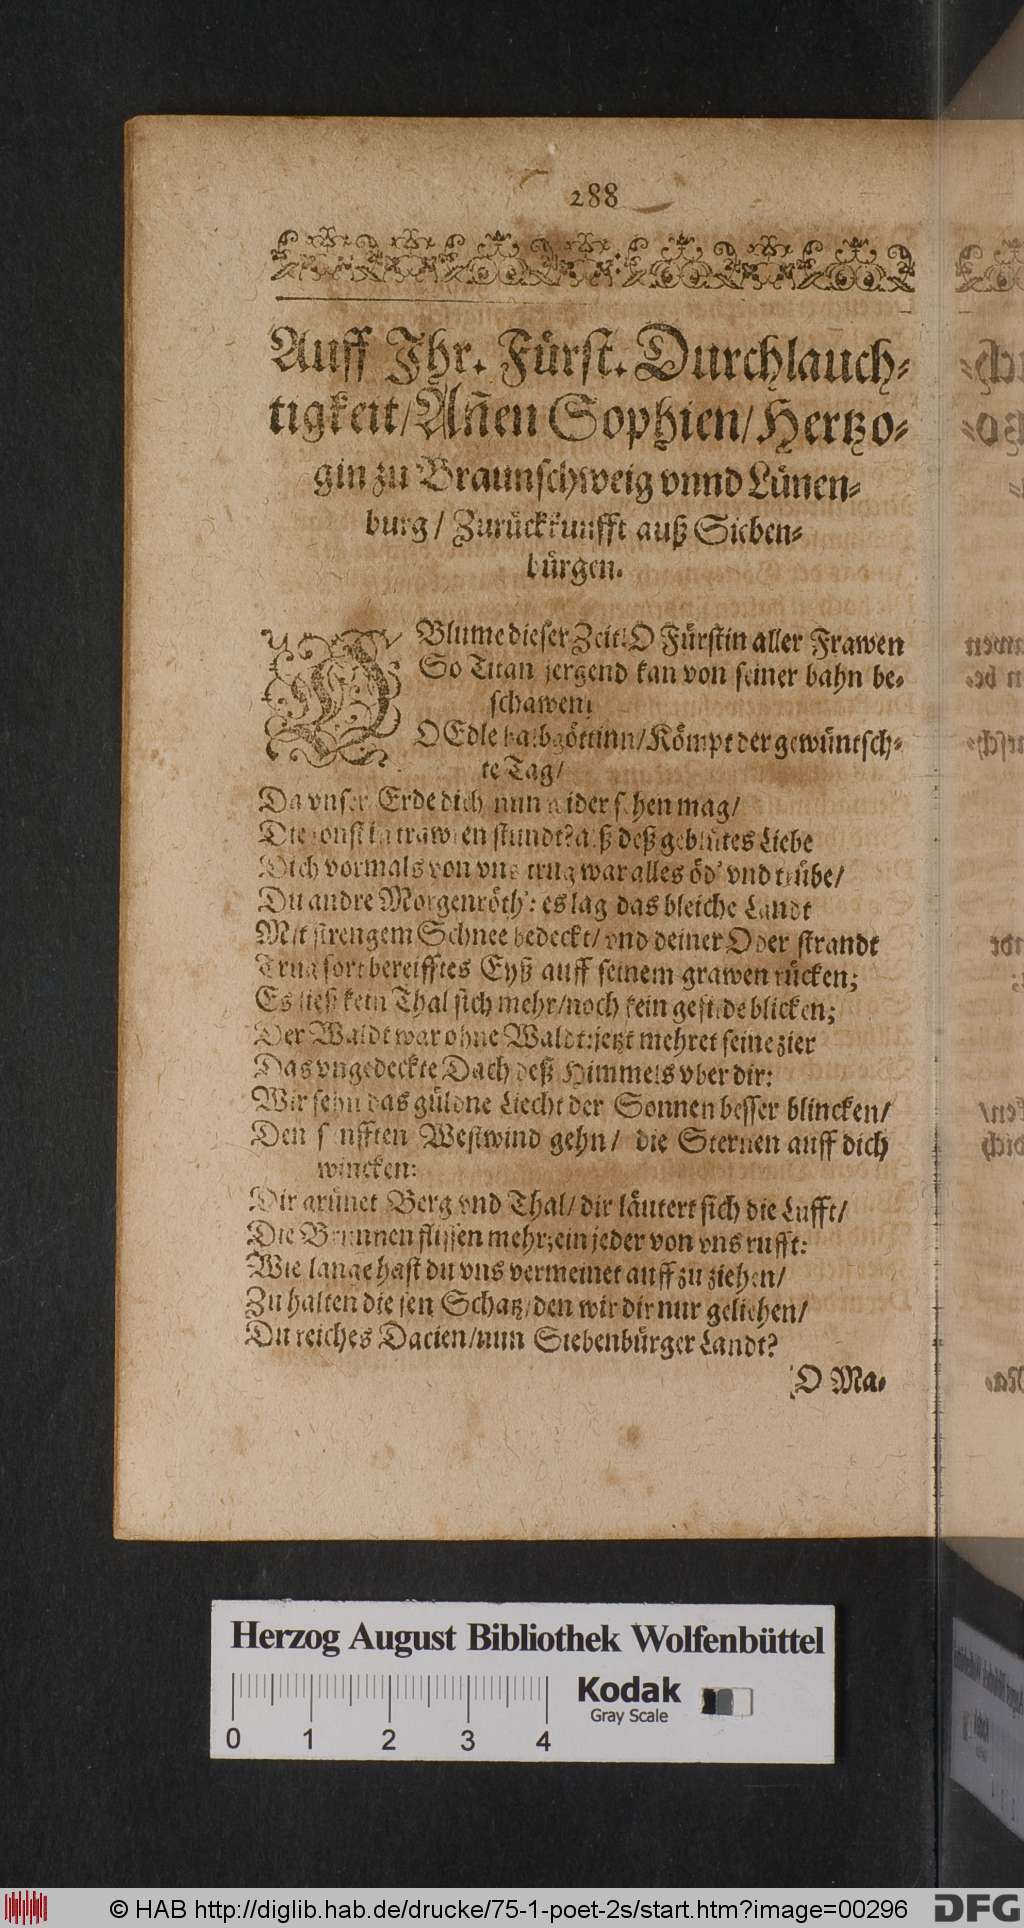 288
Auff Ihr. Fürst. Durchlauch⸗
tigkeit/ Añen Sophien/ Hertzo⸗
gin zu Braunschweig vnnd Lünen⸗
burg/ Zurückkunfft auß Sieben⸗
bürgen.
O Blume dieser Zeit! O Fürstin aller Frawen
So Titan jergend kan von seiner bahn be⸗
schawen;
O Edle halbgöttinn/ Kömpt der gewüntsch⸗
te Tag/
Da vnser Erde dich nun wider sehen mag/
Die sonst in trawren stundt? alß deß geblütes Liebe
Dich vormals von vns trug war alles öd' vnd trübe/
Du andre Morgenröth': es lag das bleiche Landt
Mit strengem Schnee bedeckt/ vnd deiner Oder strandt
Trug fort bereifftes Eyß auff seinem grawen rücken;
Es ließ kein Thal sich mehr/ noch kein gestade blicken;
Der Waldt war ohne Waldt: jetzt mehret seine zier
Das vngedeckte Dach deß Himmels vber dir:
Wir sehn das güldne Liecht der Sonnen besser blincken/
Den sanfften Westwind gehn/ die Sternen auff dich
wincken:
Dir grünet Berg vnd Thal/ dir läutert sich die Lufft/
Die Brunnen flissen mehr; ein jeder von vns rufft:
Wie lange hast du vns vermeinet auff zu ziehen/
Zu halten diesen Schatz/ den wir dir nur geliehen/
Du reiches Dacien/ nun Siebenbürger Landt?
O Ma⸗
Herzog August Bibliothek Wolfenbüttel
Kodak
Gray Scale
0 1 2 3 4
© HAB http://diglib.hab.de/drucke/75-1-poet-2s/start.htm?image=00296
DFG